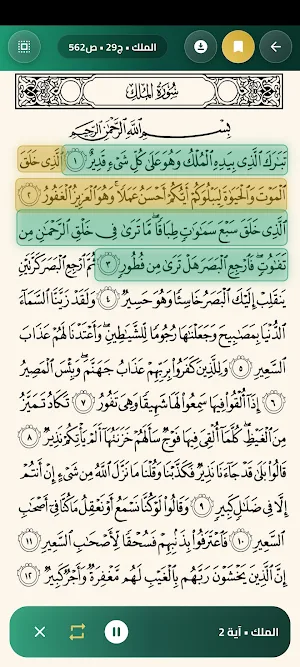 الملك • ج29 • ص562
سُورَةُ المُلْكِ
بِسْمِ اللَّهِ الرَّحْمَٰنِ الرَّحِيمِ
تَبَارَكَ الَّذِي بِيَدِهِ الْمُلْكُ وَهُوَ عَلَىٰ كُلِّ شَيْءٍ قَدِيرٌ ١ الَّذِي خَلَقَ
الْمَوْتَ وَالْحَيَاةَ لِيَبْلُوَكُمْ أَيُّكُمْ أَحْسَنُ عَمَلًا وَهُوَ الْعَزِيزُ الْغَفُورُ ٢
الَّذِي خَلَقَ سَبْعَ سَمَاوَاتٍ طِبَاقًا مَّا تَرَىٰ فِي خَلْقِ الرَّحْمَٰنِ مِن
تَفَاوُتٍ فَارْجِعِ الْبَصَرَ هَلْ تَرَىٰ مِن فُطُورٍ ٣ ثُمَّ ارْجِعِ الْبَصَرَ كَرَّتَيْنِ
يَنقَلِبْ إِلَيْكَ الْبَصَرُ خَاسِئًا وَهُوَ حَسِيرٌ ٤ وَلَقَدْ زَيَّنَّا السَّمَاءَ
الدُّنْيَا بِمَصَابِيحَ وَجَعَلْنَاهَا رُجُومًا لِّلشَّيَاطِينِ وَأَعْتَدْنَا لَهُمْ عَذَابَ
السَّعِيرِ ٥ وَلِلَّذِينَ كَفَرُوا بِرَبِّهِمْ عَذَابُ جَهَنَّمَ وَبِئْسَ الْمَصِيرُ
٦ إِذَا أُلْقُوا فِيهَا سَمِعُوا لَهَا شَهِيقًا وَهِيَ تَفُورُ ٧ تَكَادُ تَمَيَّزُ
مِنَ الْغَيْظِ كُلَّمَا أُلْقِيَ فِيهَا فَوْجٌ سَأَلَهُمْ خَزَنَتُهَا أَلَمْ يَأْتِكُمْ نَذِيرٌ ٨
قَالُوا بَلَىٰ قَدْ جَاءَنَا نَذِيرٌ فَكَذَّبْنَا وَقُلْنَا مَا نَزَّلَ اللَّهُ مِن شَيْءٍ إِنْ أَنتُمْ
إِلَّا فِي ضَلَالٍ كَبِيرٍ ٩ وَقَالُوا لَوْ كُنَّا نَسْمَعُ أَوْ نَعْقِلُ مَا كُنَّا فِي أَصْحَابِ
السَّعِيرِ ١٠ فَاعْتَرَفُوا بِذَنبِهِمْ فَسُحْقًا لِّأَصْحَابِ السَّعِيرِ ١١
إِنَّ الَّذِينَ يَخْشَوْنَ رَبَّهُم بِالْغَيْبِ لَهُم مَّغْفِرَةٌ وَأَجْرٌ كَبِيرٌ ١٢
الملك • آية 2